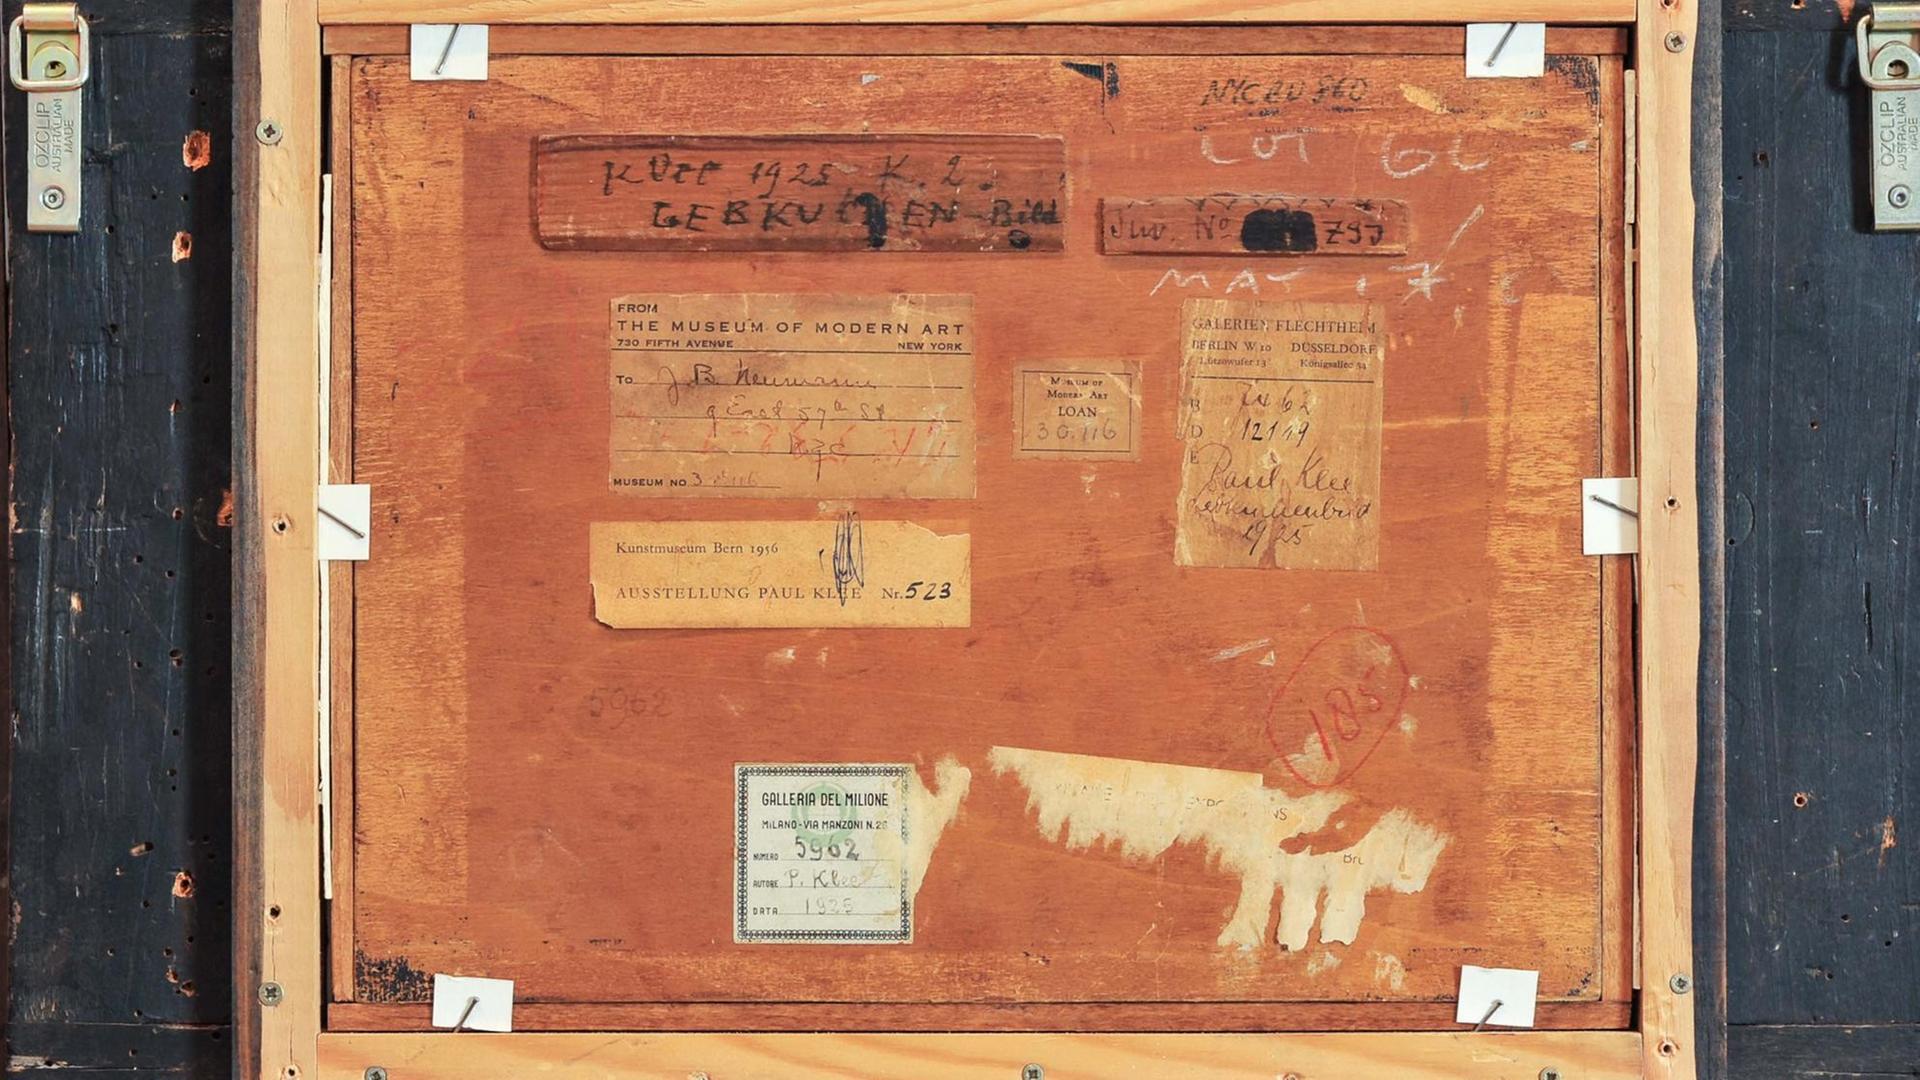 OZCLIP
AUSTRALIAN
MADE
OZCLIP
AUSTRALIAN
MADE
NYCBU 960
LOT
KLEE 1925 K. 2.
LEBKUCHEN-Bild
Inv. Nº
MAY 17
FROM
THE MUSEUM OF MODERN ART
730 FIFTH AVENUE NEW YORK
To J. B. Neumann
9 East 57th St
MUSEUM NO
MUSEUM OF
MODERN ART
LOAN
30.116
GALERIEN FLECHTHEIM
BERLIN W 10 DÜSSELDORF
Lützowufer 13 Königsallee 34
B
D 12119
E
Paul Klee
Lebkuchenbild
1925
Kunstmuseum Bern 1956
AUSSTELLUNG PAUL KLEE Nr. 523
5962
185
GALLERIA DEL MILIONE
MILANO-VIA MANZONI N.26
NUMERO 5962
AUTORE P. Klee
DATA 1925